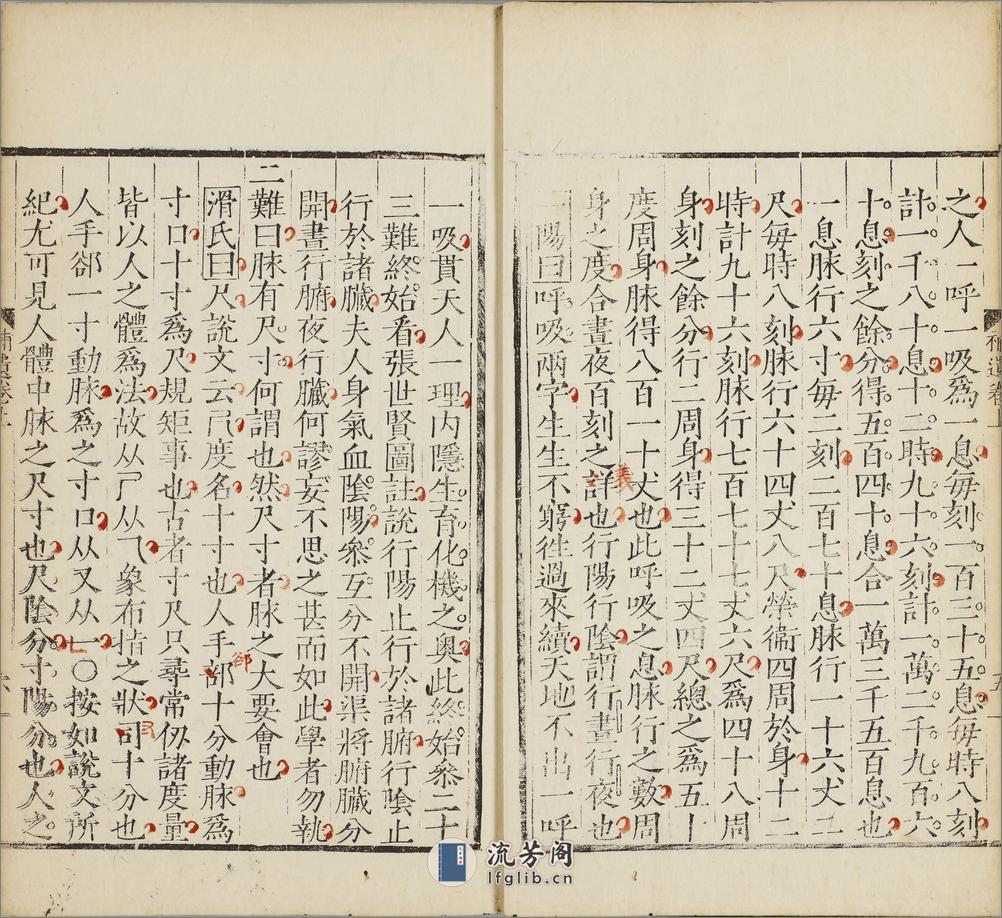 之人一呼一吸爲一息每刻一百三十五息每時八刻
計一千八十息十二時九十六刻計一萬二千九百六
十息刻之餘分得五百四十息合一萬三千五百息也
一息脉行六寸每二刻二百七十息脉行一十六丈二
尺每時八刻脉行六十四丈八尺榮衞四周於身十二
時計九十六刻脉行七百七十七丈六尺爲四十八周
身刻之餘分行二周身得三十二丈四尺總之爲五十
度周身脉得八百一十丈也此呼吸之息脉行之數周
身之度合晝夜百刻之詳也行陽行陰謂行晝行夜也
義
陽曰呼吸兩字生生不窮徃過來續天地不出一呼
一吸貫天人一理内隱生育化機之奥此終始參二十
三難終始看張世賢圖註說行陽止行於諸腑行陰止
行於諸臟夫人身氣血陰陽參互分不開渠將腑臟分
開晝行腑夜行臟何謬妄不思之甚而如此學者勿執
二難曰脉有尺寸何謂也然尺寸者脉之大要會也
滑氏曰尺說文云尺度名十寸也人手郤十分動脉爲
郤
寸口十寸爲尺規矩事也古者寸尺只尋常仞諸度量
皆以人之體爲法故从尸从乀象布指之狀司十分也
人手郤一寸動脉爲之寸口从又从一〇按如說文所
紀尤可見人體中脉之尺寸也尺陰分寸陽分也人之
流芳阁
lfglib.cn